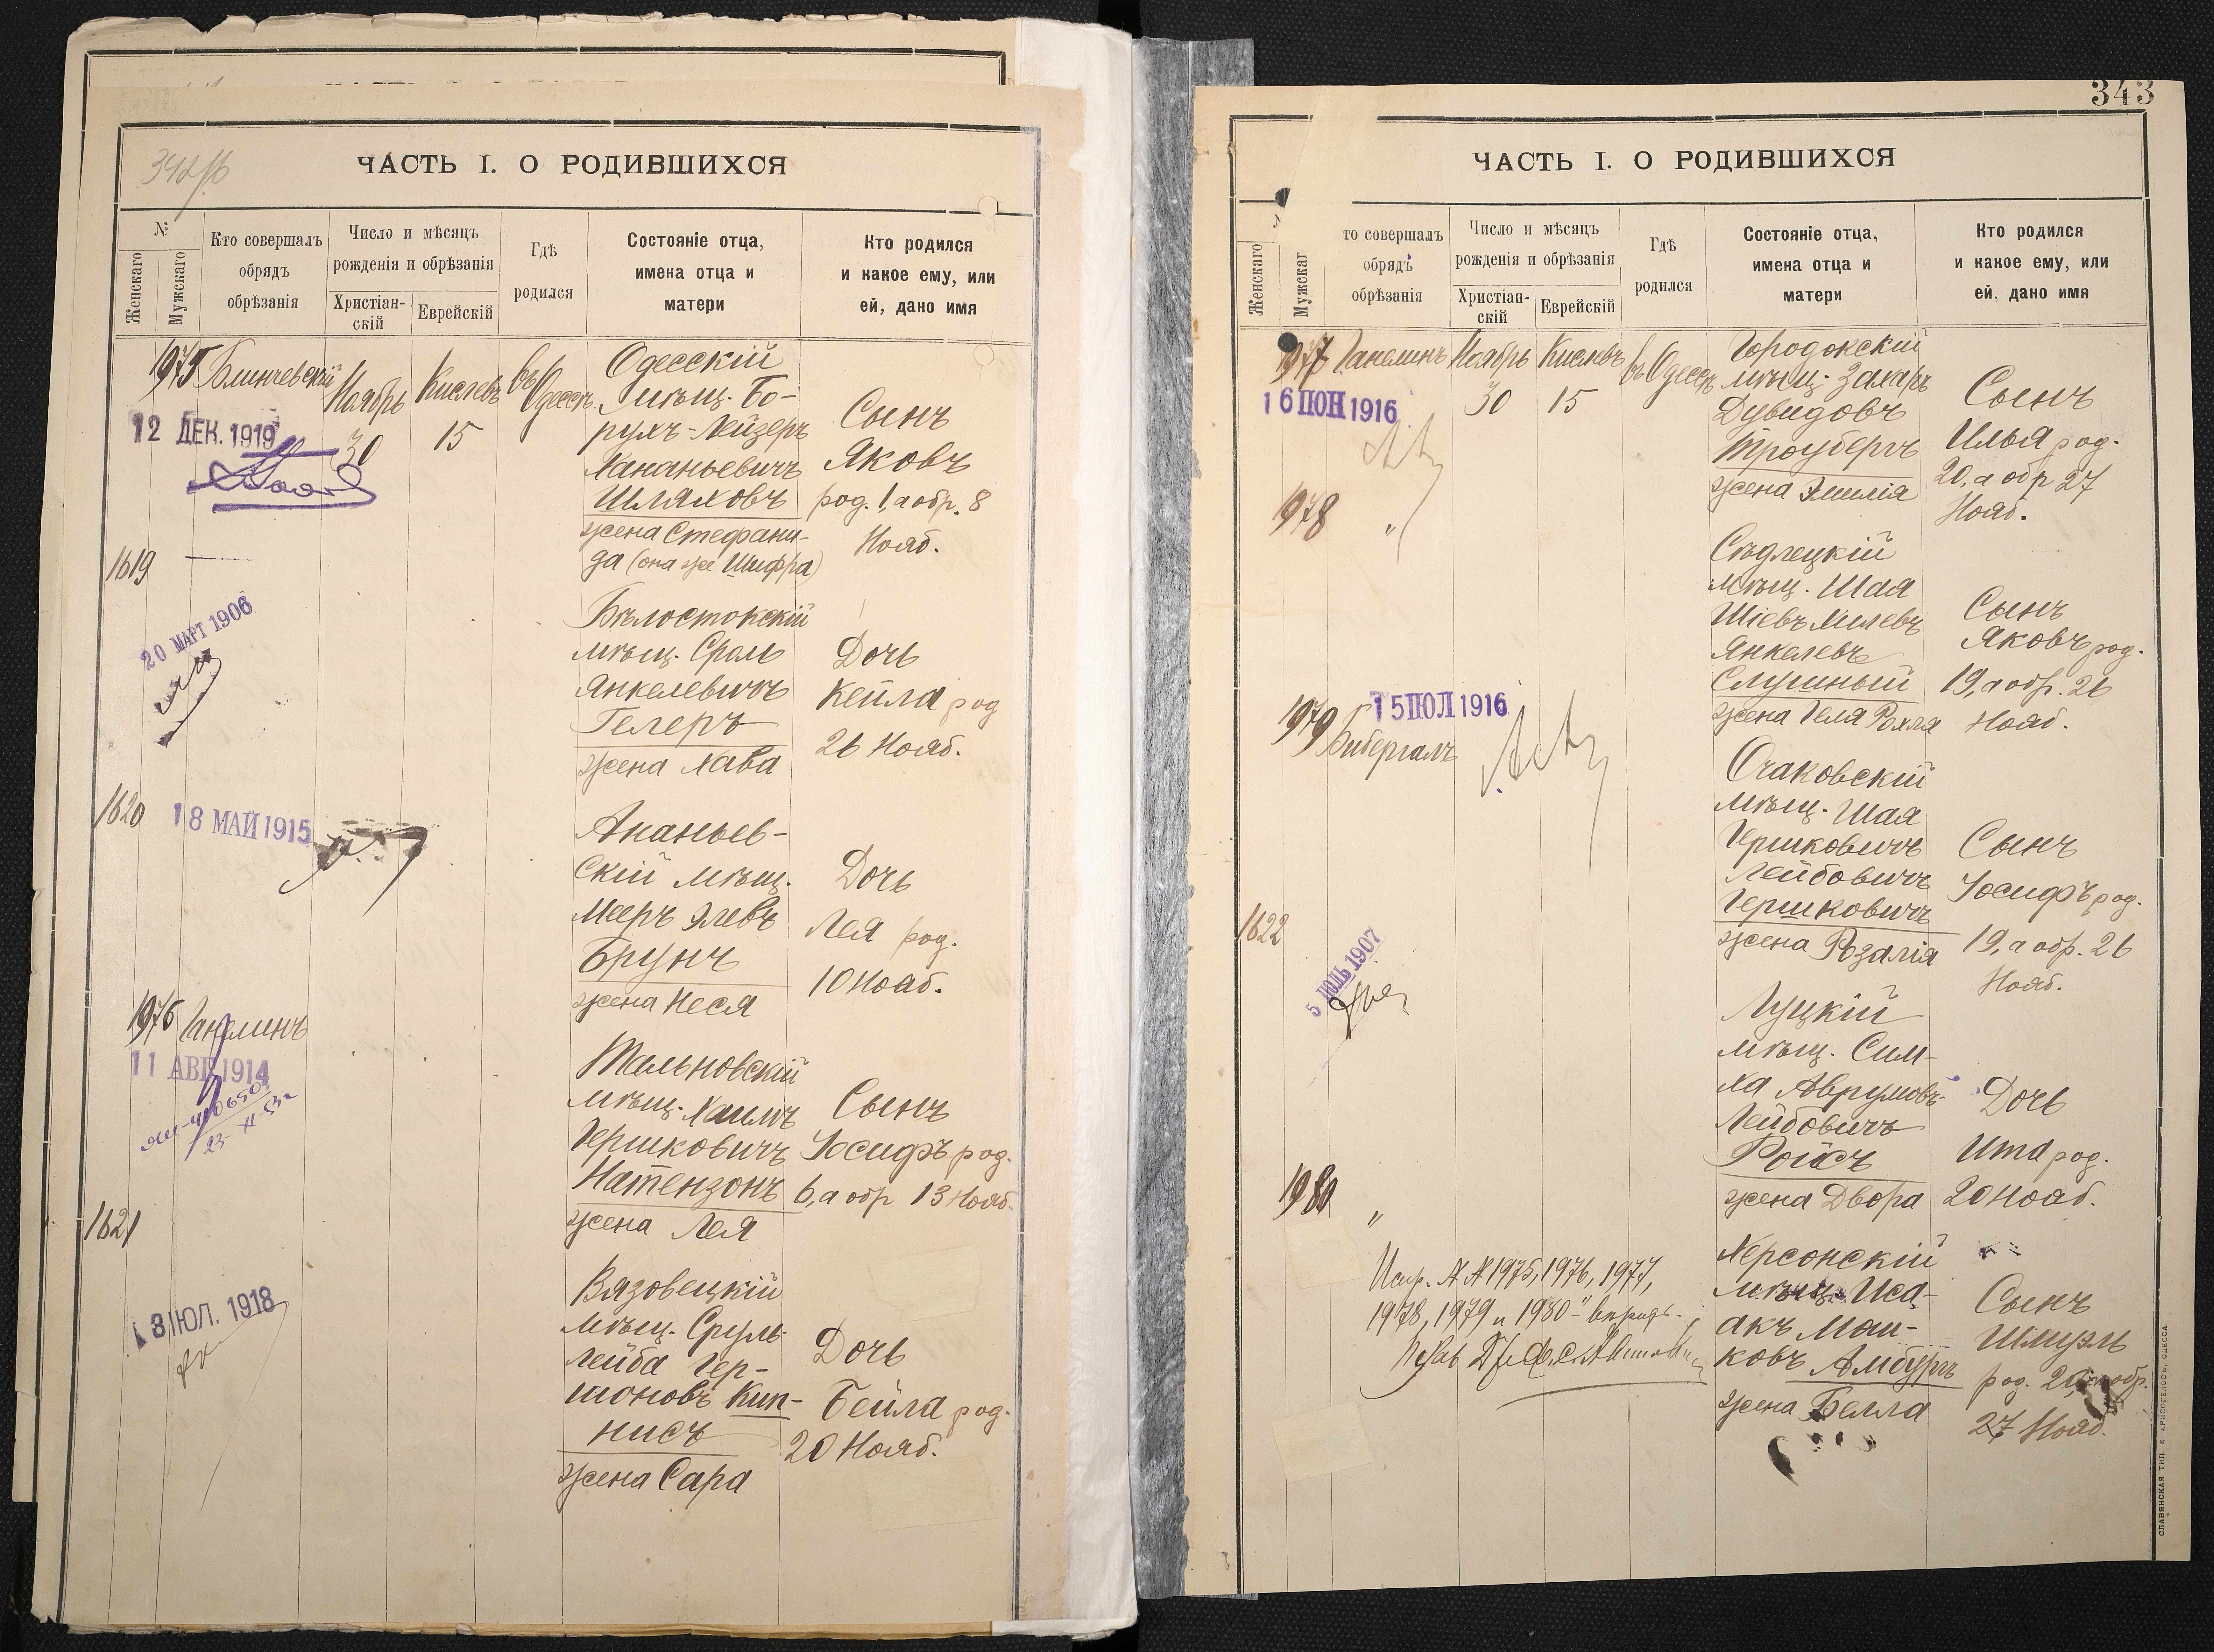 342/б
ЧАСТЬ I. О РОДИВШИХСЯ
№
Женскаго
Мужскаго
Кто совершалъ
обрядъ
обрѣзанія
Число и мѣсяцъ
рожденія и обрѣзанія
Христіан-
скій
Еврейскій
Гдѣ
родился
Состояніе отца,
имена отца и
матери
Кто родился
и какое ему, или
ей, дано имя
1975
Ноябрь
30
Кислевъ
15
въ Одессѣ
Одесскій
мѣщ. Бо-
рухъ-Лейзеръ
Хананьевичъ
Шляховъ
жена Стефани-
да (она же Шифра)
Сынъ
Яковъ
род. 1, а обр. 8
Нояб.
12 ДЕК. 1919
1619
20 МАРТ 1906
Бѣлостокскій
мѣщ. Сроль
Янкелевичъ
Гелеръ
жена Хава
Дочь
Кейла род
26 Нояб.
1620
18 МАЙ 1915
Ананьев-
скій мѣщ.
Мееръ Элевъ
Брунъ
жена Неся
Дочь
Лея род.
10 Нояб.
1976 Ганелинъ
11 АВГ 1914
Тальновскій
мѣщ. Хаимъ
Гершковичъ
Натензонъ
жена Лея
Сынъ
Іосифъ род.
6, а обр 13 Нояб.
1621
ИЮЛ. 1918
Вязовецкій
мѣщ. Сруль-
Лейба Гер-
шоновъ Кип-
нисъ
жена Сара
Дочь
Бейла род.
20 Нояб.
343
ЧАСТЬ I. О РОДИВШИХСЯ
Женскаго
Мужскаг
то совершалъ
обрядъ
обрѣзанія
Число и мѣсяцъ
рожденія и обрѣзанія
Христіан-
скій
Еврейскій
Гдѣ
родился
Состояніе отца,
имена отца и
матери
Кто родился
и какое ему, или
ей, дано имя
1977 Ганелинъ
Ноябрь
30
Кислевъ
15
въ Одессѣ
Городокскій
мѣщ. Захаръ
Дувидовъ
Троубергъ
жена Эмилія
Сынъ
Илья род.
20, а обр 27
Нояб.
16 ИЮН 1916
1978 "
Сѣдлецкій
мѣщ. Шая
Шіевъ Хилевъ
Янкелевъ
Слушный
жена Геля Рохля
Сынъ
Яковъ род.
19, а обр. 26
Нояб.
15 ИЮЛ 1916
1979 Бибергалъ
Очаковскій
мѣщ. Шая
Гершковичъ
Лейбовичъ
Гершковичъ
жена Розалія
Сынъ
Іосифъ род.
19, а обр. 26
Нояб.
1622
5 1907
Луцкій
мѣщ. Сим-
ха Аврумовъ-
Лейбовичъ
Ройсъ
жена Двора
Дочь
Ита род.
20 Нояб.
1980 "
Херсонскій
мѣщ. Иса-
акъ Мош-
ковъ Амбургъ
жена Белла
Сынъ
Шмуэль
род. 20, а обр.
27 Нояб.
1975, 1976, 1977,
1978, 1979 и 1980
СЛАВЯНСКАЯ ТИП. Е. ХРИСОГЕЛОСЪ, ОДЕССА